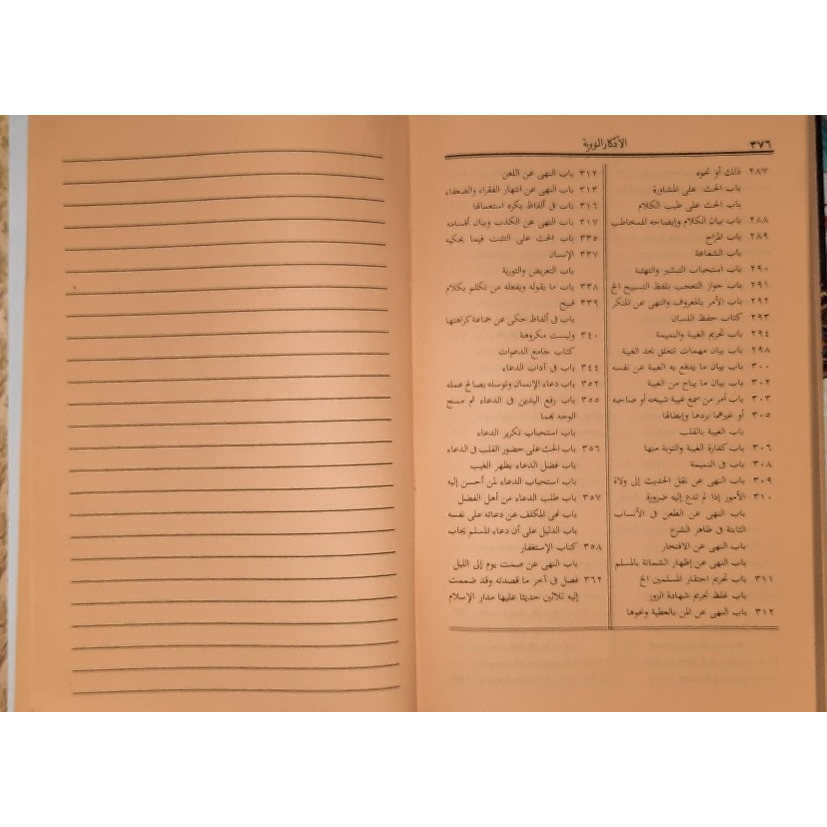 ٣٧٦ الأذكار النووية
٢٨٧ ذلك أو نحوه
باب الحث على المشاورة
باب الحث على طيب الكلام
٢٨٨ باب بيان الكلام وإيضاحه للمخاطب
٢٨٩ باب المزاح
باب الشفاعة
٢٩٠ باب استحباب التبشير والتهنئة
٢٩١ باب جواز التعجب بلفظ التسبيح الخ
٢٩٢ باب الأمر بالمعروف والنهى عن المنكر
٢٩٣ كتاب حفظ اللسان
٢٩٤ باب تحريم الغيبة والنميمة
٢٩٨ باب بيان مهمات تتعلق بحد الغيبة
٣٠٠ باب بيان ما يدفع به الغيبة عن نفسه
٣٠٢ باب بيان ما يباح من الغيبة
٣٠٣ باب أمر من سمع غيبة شيخه أو صاحبه
٣٠٥ أو غيرهما بردها وإبطالها
باب الغيبة بالقلب
٣٠٦ باب كفارة الغيبة والتوبة منها
٣٠٨ باب فى النميمة
٣٠٩ باب النهى عن نقل الحديث إلى ولاة
٣١٠ الأمور إذا لم تدع إليه ضرورة
باب النهى عن الطعن فى الأنساب
الثابتة فى ظاهر الشرع
باب النهى عن الافتخار
باب النهى عن إظهار الشماتة بالمسلم
٣١١ باب تحريم احتقار المسلمين الخ
باب غلظ تحريم شهادة الزور
٣١٢ باب النهى عن المن بالعطية ونحوها
٣١٢ باب النهى عن اللعن
٣١٣ باب النهى عن انتهار الفقراء والضعفاء
٣١٦ باب فى ألفاظ يكره استعمالها
٣١٧ باب النهى عن الكذب وبيان أقسامه
٣٣٥ باب الحث على التثبت فيما يحكيه
٣٣٧ الإنسان
باب التعريض والتورية
٣٣٨ باب ما يقوله ويفعله من تكلم بكلام
٣٣٩ قبيح
باب فى ألفاظ حكى عن جماعة كراهتها
٣٤٠ وليست مكروهة
كتاب جامع الدعوات
٣٤٤ باب فى آداب الدعاء
٣٥٢ باب دعاء الإنسان وتوسله بصالح عمله
٣٥٥ باب رفع اليدين فى الدعاء ثم مسح
الوجه بهما
باب استحباب تكرير الدعاء
٣٥٦ باب الحث على حضور القلب فى الدعاء
باب فضل الدعاء بظهر الغيب
باب استحباب الدعاء لمن أحسن إليه
٣٥٧ باب طلب الدعاء من أهل الفضل
باب نهى المكلف عن دعائه على نفسه
باب الدليل على أن دعاء المسلم يجاب
٣٥٨ كتاب الإستغفار
باب النهى عن صمت يوم إلى الليل
٣٦٢ فصل فى آخر ما قصدته وقد ضممت
إليه ثلاثين حديثا عليها مدار الإسلام